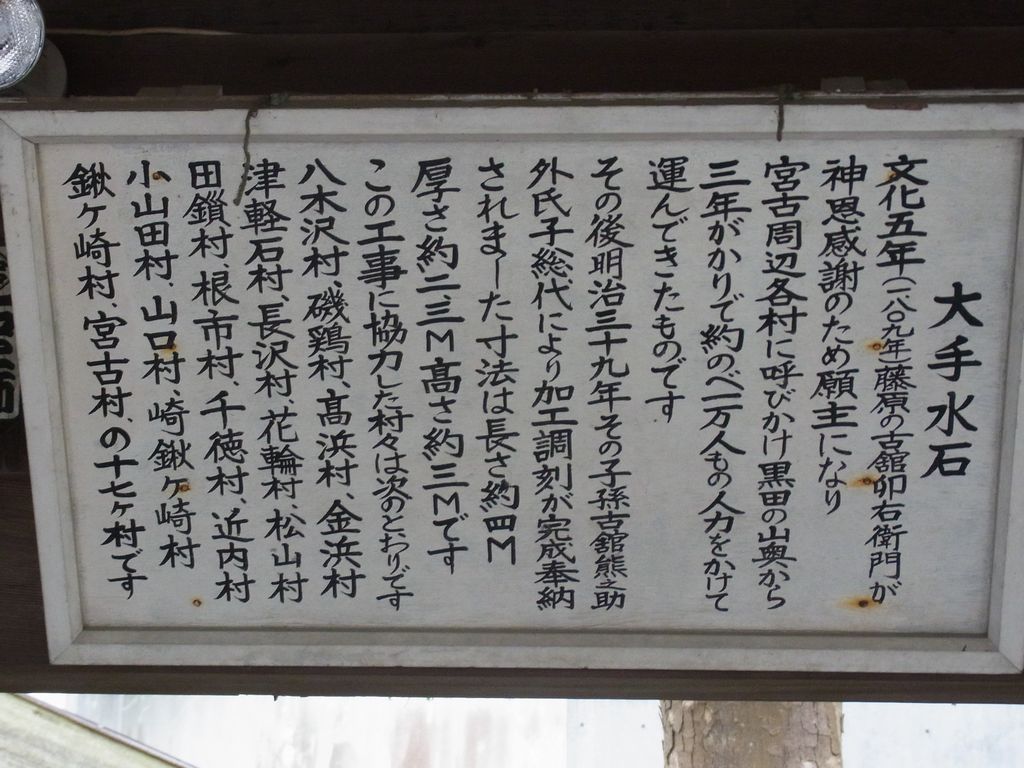 大手水石
文化五年(一八〇九年)藤原の古舘卯右衛門が
神恩感謝のため願主になり
宮古周辺各村に呼びかけ黒田の山奥から
三年がかりで約のべ一万人もの人力をかけて
運んできたものです
その後明治三十九年その子孫古舘熊之助
外氏子総代により加工調刻が完成奉納
されました寸法は長さ約四M
厚さ約二、三M高さ約三Mです
この工事に協力した村々は次のとおりです
八木沢村、磯鶏村、高浜村、金浜村
津軽石村、長沢村、花輪村、松山村
田鎖村、根市村、千徳村、近内村
小山田村、山口村、崎鍬ヶ崎村
鍬ヶ崎村、宮古村、の十七ヶ村です